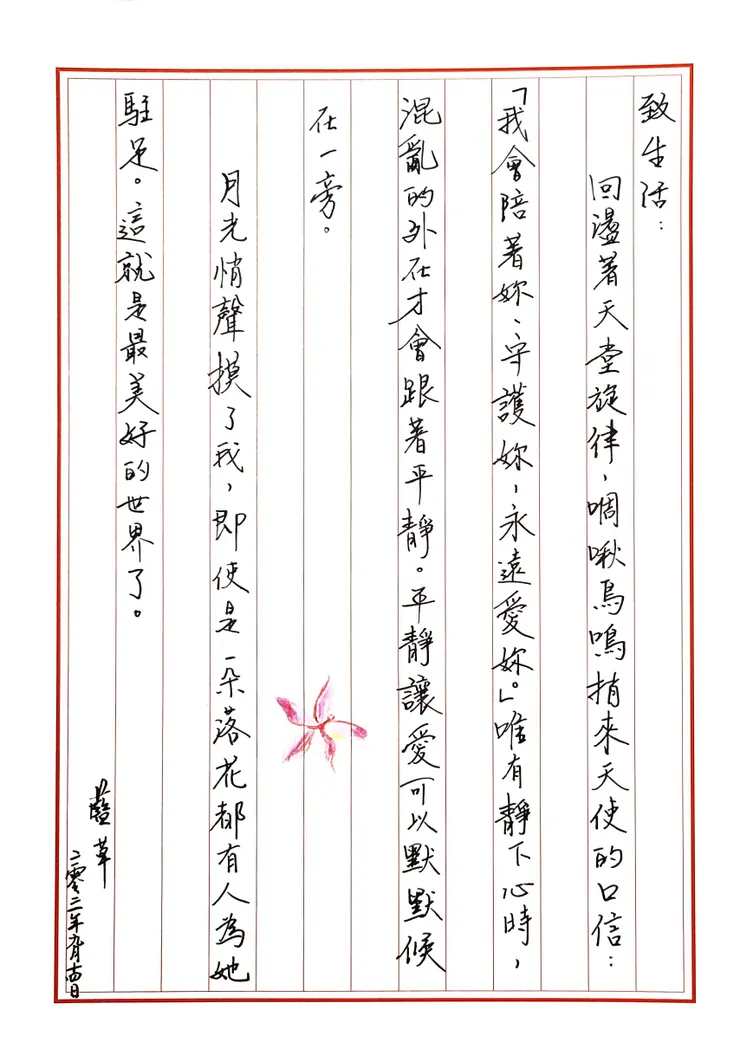 致生活：
回盪著天堂旋律，啁啾鳥鳴捎來天使的口信：
「我會陪著妳、守護妳，永遠愛妳。」唯有靜下心時，
混亂的外在才會跟著平靜。平靜讓愛可以默默候
在一旁。
月光悄聲摸了我，即使是一朵落花都有人為她
駐足。這就是最美好的世界了。
藍草